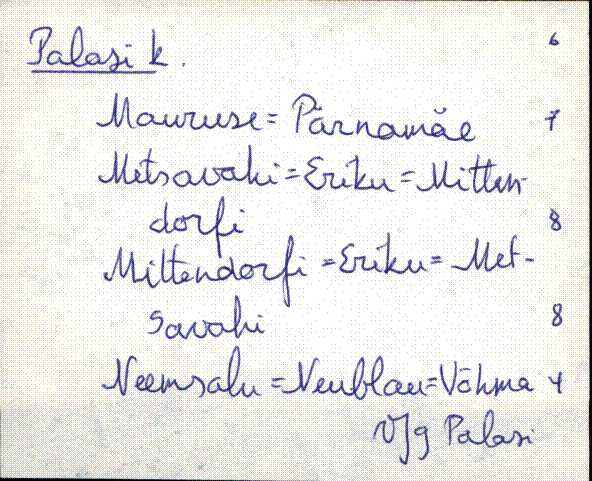 Palasi k. 6
Mauruse = Pärnamäe 7
Metsavahi = Eriku = Mitten-
dorfi 8
Mittendorfi = Eriku = Met-
savahi 8
Neemsalu = Neublau = Võhma 4
V/g Palasi